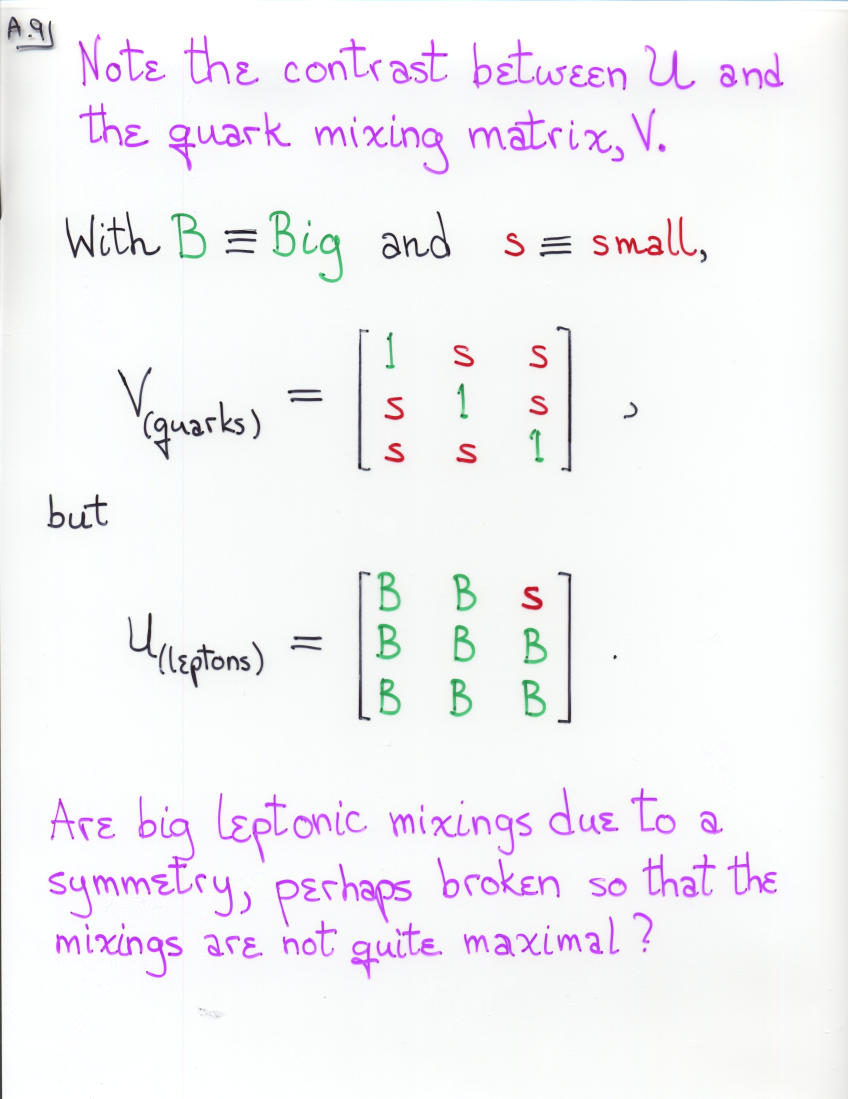 A.9
Note the contrast between U and
the quark mixing matrix, V.
With B ≡ Big and s ≡ small,
V(quarks) = [ 1 s s
s 1 s
s s 1 ] ,
but
U(leptons) = [ B B s
B B B
B B B ] .
Are big leptonic mixings due to a
symmetry, perhaps broken so that the
mixings are not quite maximal?